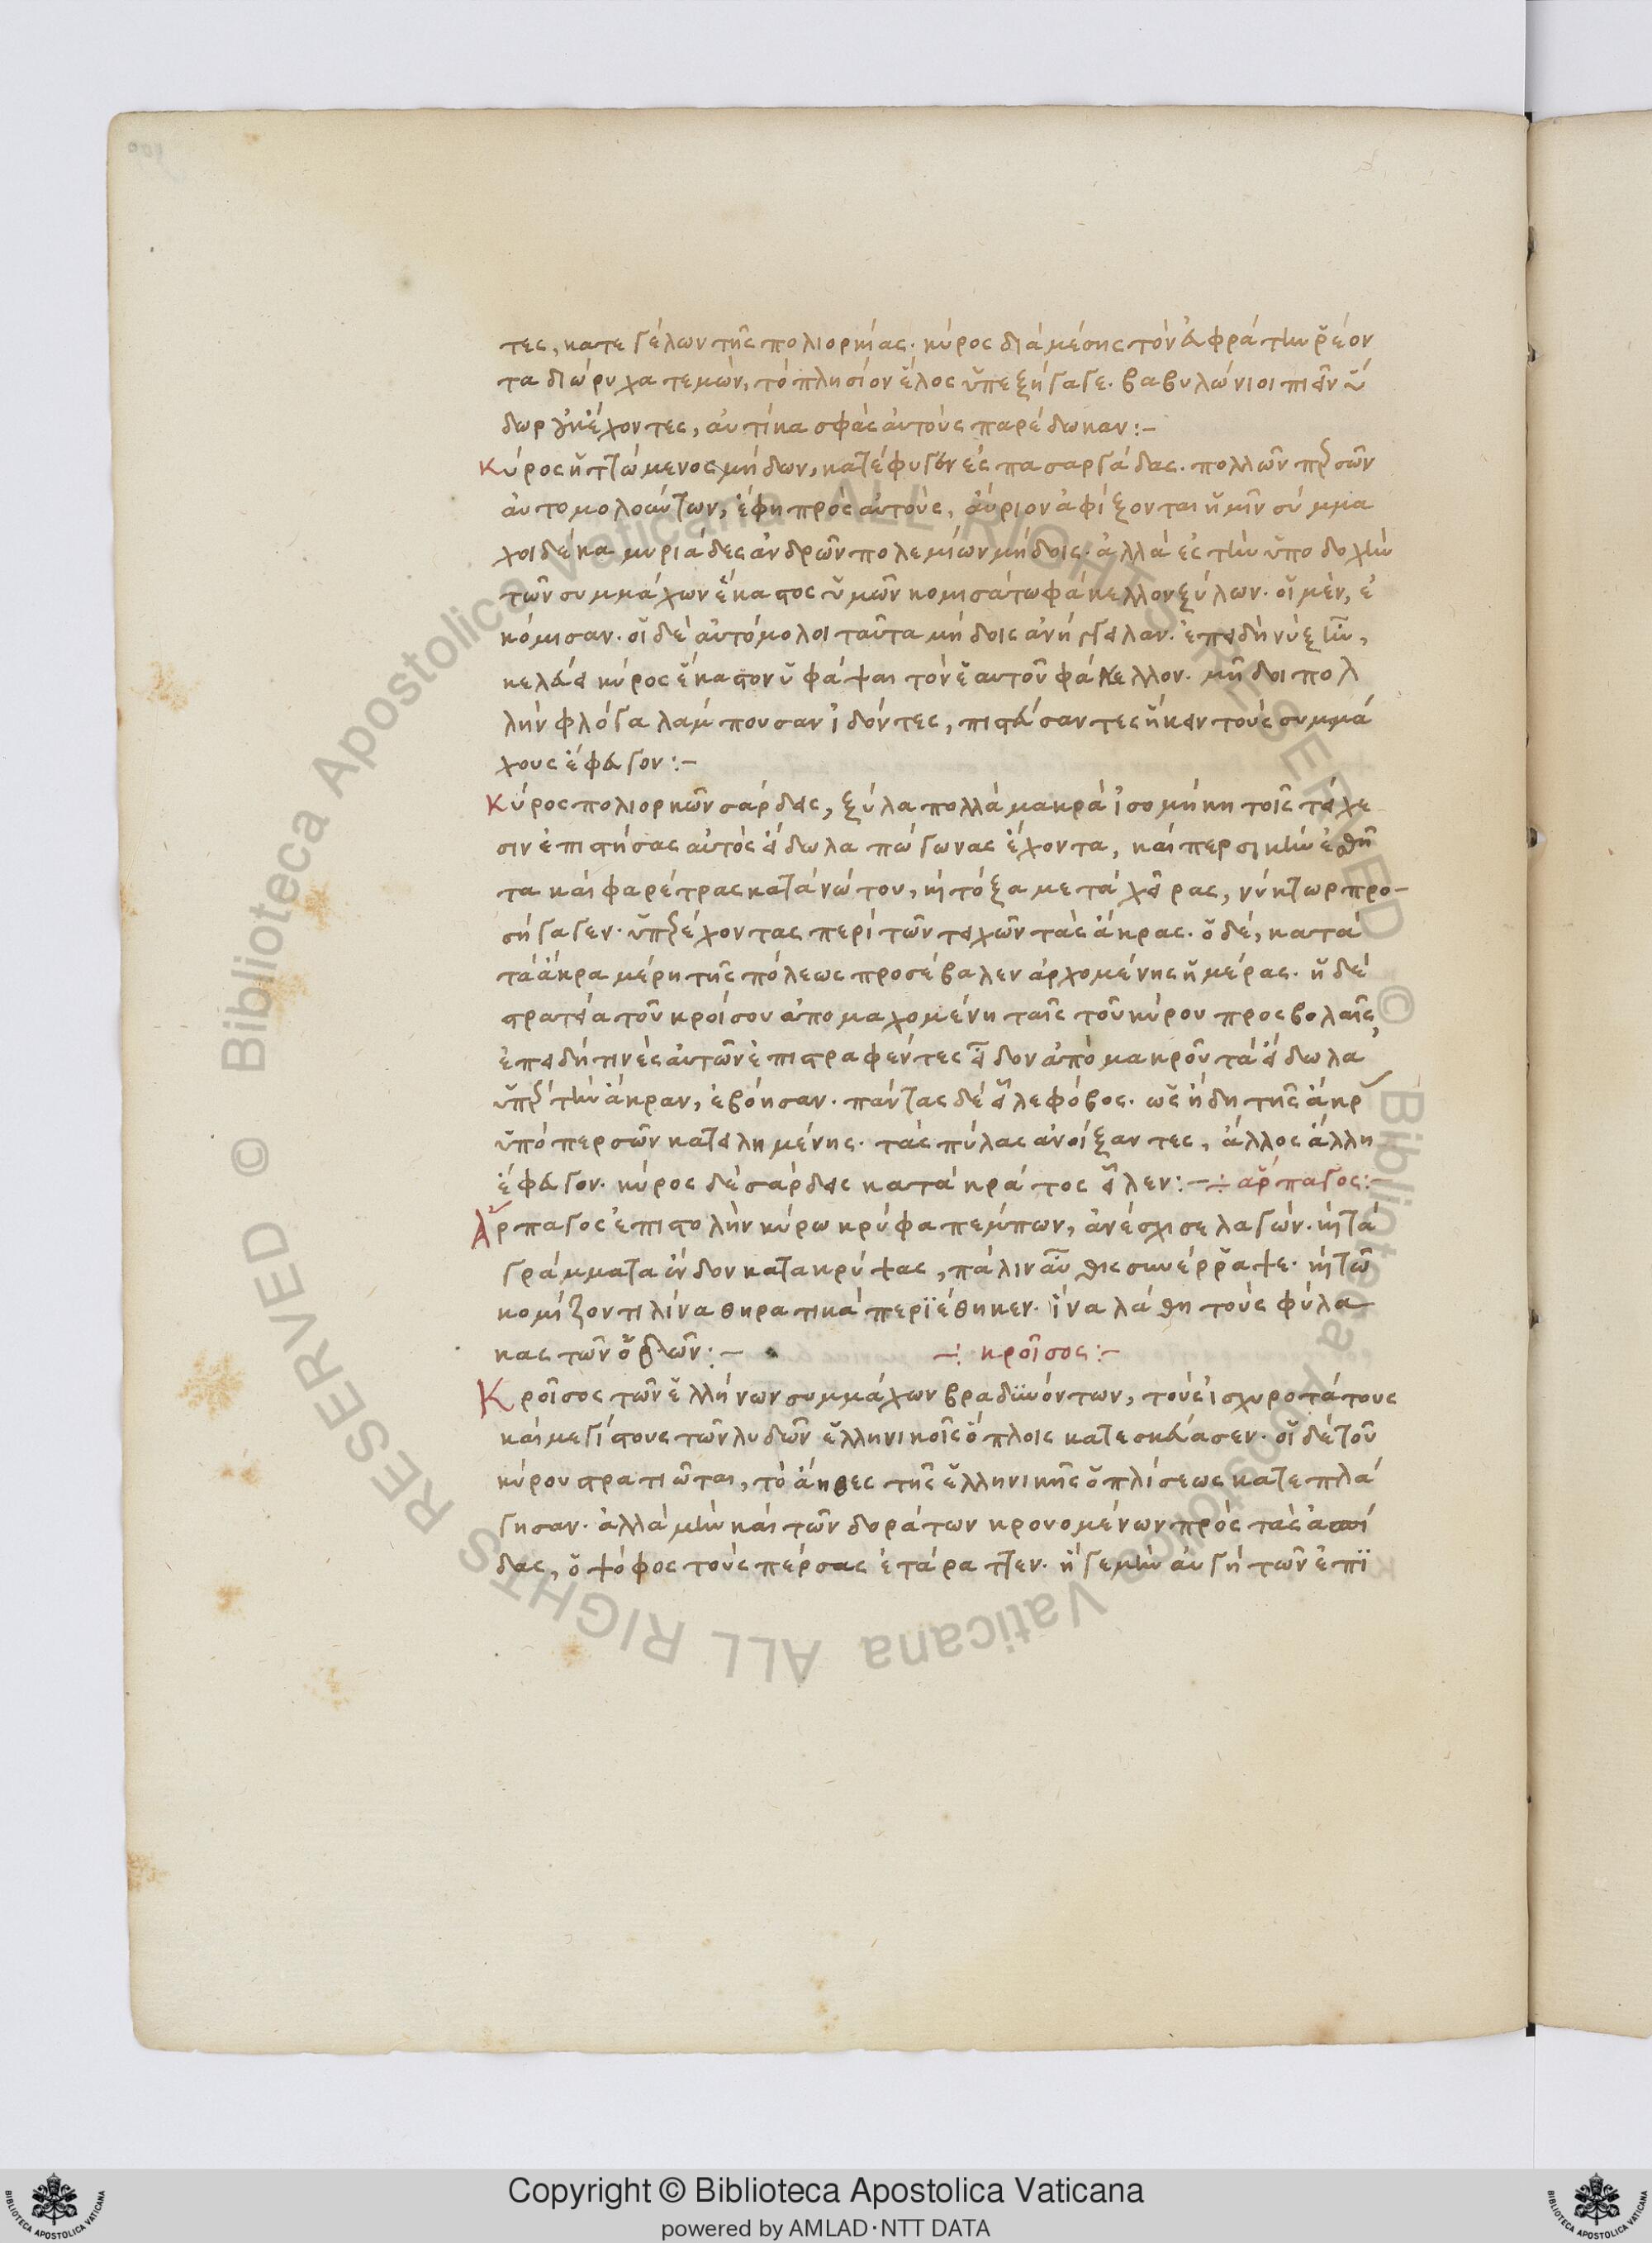 τες, κατεγέλων τῆς πολιορκίας. κύρος διὰ μέσης τὸν εὐφράτην ῥέον
τα διώρυχα τεμὼν, τὸ πλησίον ἕλος ὑπεξήγαγε. βαβυλώνιοι πιεῖν ὕ
δωρ οὐκ ἔχοντες, αὐτίκα σφᾶς αὐτοὺς παρέδωκαν:-
Κύρος ἡττώμενος μήδων, κατέφυγεν ἐς πασαργάδας. πολλῶν περσῶν
αὐτομολούντων, ἔφη πρὸς αὐτοὺς, αὔριον ἀφίξονται ἡμῖν σύμμα
χοι δέκα μυριάδες ἀνδρῶν πολεμίων μήδοις. ἀλλὰ ἐς τὴν ὑποδοχὴν
τῶν συμμάχων ἕκαστος ὑμῶν κομισάτω φάκελλον ξύλων. οἱ μὲν, ἐ
κόμισαν. οἱ δὲ αὐτόμολοι ταῦτα μήδοις ἀνήγγειλαν. ἐπειδὴ νὺξ ἦν,
κελεύει κύρος ἕκαστον ὑφάψαι τὸν ἑαυτοῦ φάκελλον. μῆδοι πολ
λὴν φλόγα λάμπουσαν ἰδόντες, πιστεύσαντες ἥκειν τοὺς συμμά
χους ἔφευγον:-
Κύρος πολιορκῶν σάρδεις, ξύλα πολλὰ μακρὰ ἰσομήκη τοῖς τείχε
σιν ἐπιστήσας αὐτὸς εἴδωλα πώγωνας ἔχοντα, καὶ περσικὴν ἐσθῆ
τα καὶ φαρέτρας κατὰ νώτου, καὶ τόξα μετὰ χεῖρας, νύκτωρ προ-
σήγαγεν. ὑπερέχοντας περὶ τῶν τειχῶν τὰς ἄκρας. ὁ δὲ, κατὰ
τὰ ἄκρα μέρη τῆς πόλεως προσέβαλεν ἀρχομένης ἡμέρας. ἡ δὲ
στρατεία τοῦ κροίσου ἀπομαχομένη ταῖς τοῦ κύρου προσβολαῖς,
ἐπειδὴ τινὲς αὐτῶν ἐπιστραφέντες εἶδον ἀπὸ μακροῦ τὰ εἴδωλα
ὑπὲρ τὴν ἄκραν, ἐβόησαν. πάντας δὲ εἷλε φόβος. ὡς ἤδη τῆς ἄκρ
ὑπὸ περσῶν κατειλημένης. τὰς πύλας ἀνοίξαντες, ἄλλος ἄλλη
ἔφευγον. κύρος δὲ σάρδεις κατὰ κράτος εἷλεν:-÷ ἅρπαγος:-
Ἅρπαγος ἐπιστολὴν κύρω κρύφα πέμπων, ἀνέσχισε λαγών. καὶ τὰ
γράμματα ἔνδον κατακρύψας, πάλιν αὖθις συνέρραψε. καὶ τῶ
κομίζοντι λίνα θηρατικὰ περϊέθηκεν. ἵνα λάθη τοὺς φύλα
κας τῶν ὁδῶν:-
÷ κροῖσος:-
Κροῖσος τῶν ἑλλήνων συμμάχων βραδυνόντων, τοὺς ἰσχυροτάτους
καὶ μεγίστους τῶν λυδῶν ἑλληνικοῖς ὅπλοις κατεσκεύασεν. οἱ δὲ τοῦ
κύρου στρατιῶται, τὸ ἄηθες τῆς ἑλληνικῆς ὁπλίσεως κατεπλά
γησαν. ἀλλὰ μὴν καὶ τῶν δοράτων κρουομένων πρὸς τὰς ἀσπί
δας, ὁ ψόφος τοὺς πέρσας ἐτάραττεν. ἥγε μὴν αὐγὴ τῶν ἐπὶ
© Biblioteca Apostolica Vaticana ALL RIGHTS RESERVED © Biblioteca Apostolica Vaticana ALL RIGHTS RESERVED
Copyright © Biblioteca Apostolica Vaticana
powered by AMLAD·NTT DATA
BIBLIOTECA APOSTOLICA VATICANA
BIBLIOTECA APOSTOLICA VATICANA